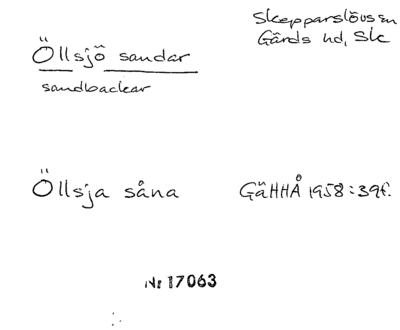 Skepparslövs sn
Gärds hd, Sk
Öllsjö sandar
sandbackar
Öllsja såna
GäHHÅ 1958:39f.
Nr 17063